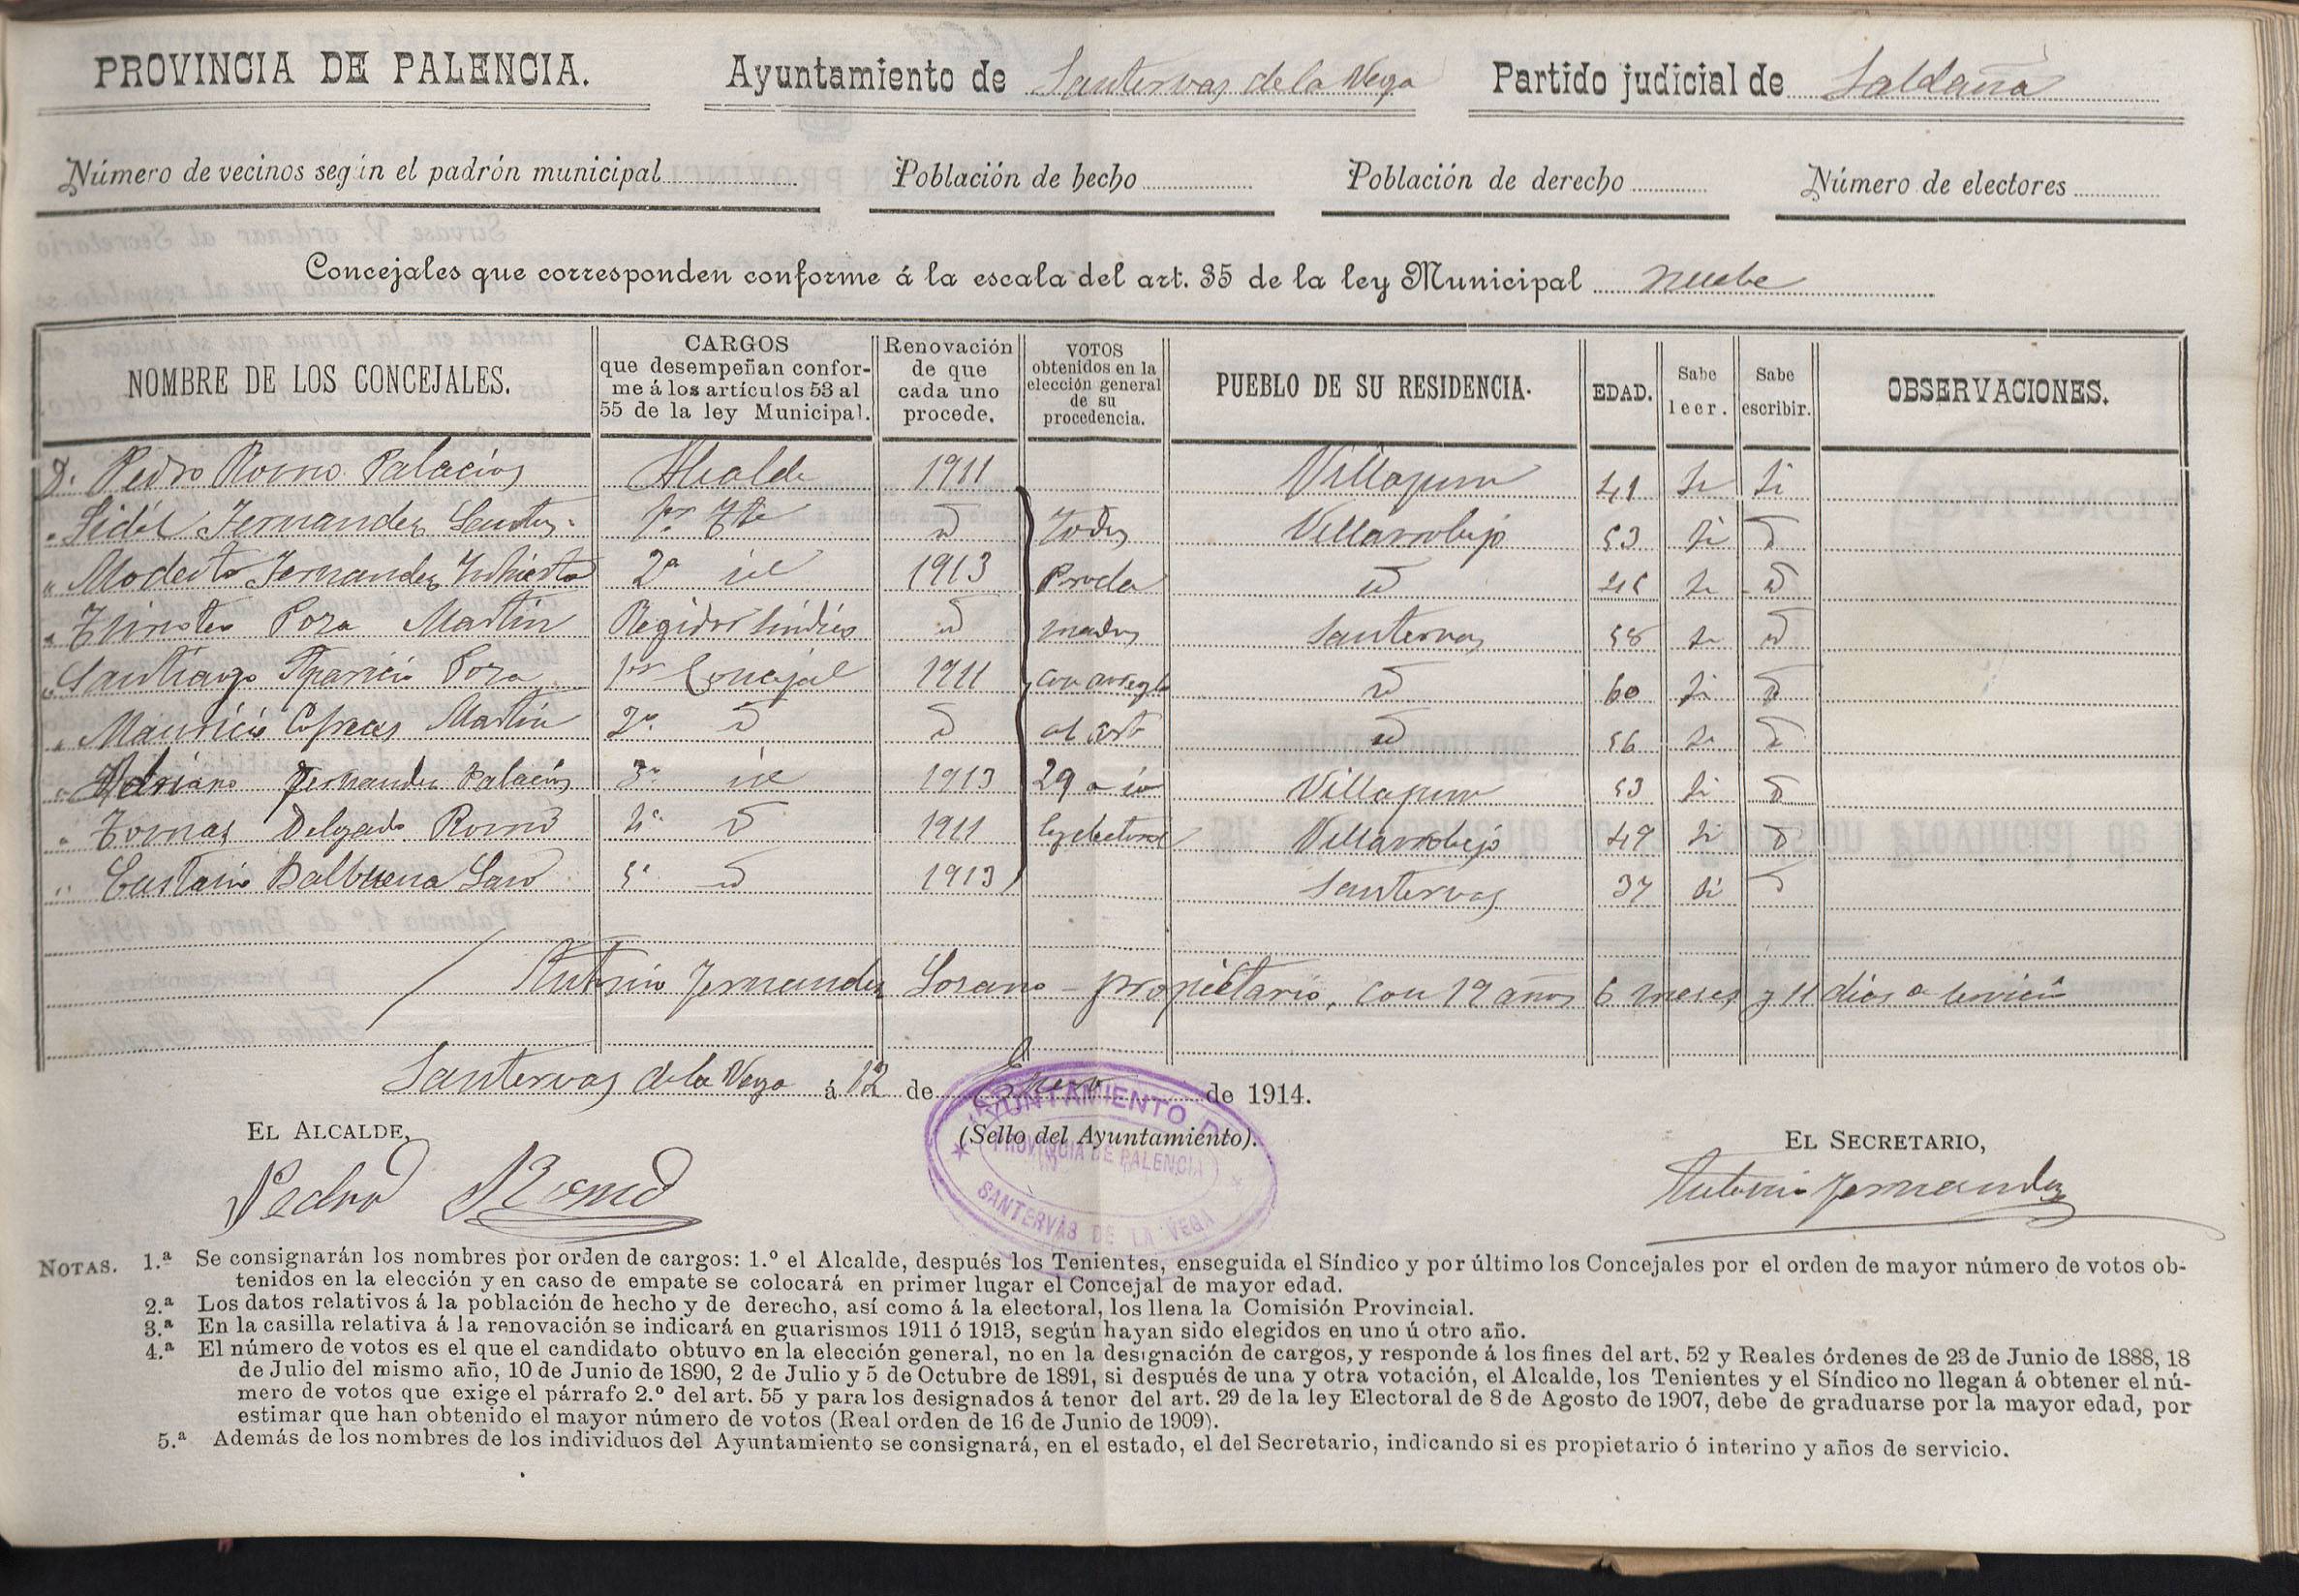 PROVINCIA DE PALENCIA. Ayuntamiento de Santervas de la Vega Partido judicial de Saldaña
Número de vecinos según el padrón municipal Población de hecho Población de derecho Número de electores
Concejales que corresponden conforme á la escala del art. 35 de la ley Municipal nuebe
NOMBRE DE LOS CONCEJALES. CARGOS que desempeñan conforme á los artículos 53 al 55 de la ley Municipal. Renovación de que cada uno procede. VOTOS obtenidos en la elección general de su procedencia. PUEBLO DE SU RESIDENCIA. EDAD. Sabe leer. Sabe escribir. OBSERVACIONES.
D. Pedro Romo Palacios Alcalde 1911 Villapun 41 si si
" Fidél Fernandez Santos 1er Tte id Todos Villarrobejo 53 si id
" Modesto Fernandez 2º id 1913 Procla id si id
" Poza Martin Regidor Sindico id mados Santervas 58 si id
" Santiago Aparicio Poza 1er Concejal 1911 con arreglo id 60 si id
" Mauricio Martin 2º id id al art id 56 si id
" Adriano Fernandez Palacios 3º id 1913 29 Villapun 53 si id
" Tomas Delgado Romo 4º id 1911 ley electoral Villarrobejo 49 si id
" Eustasio Balbuena 5º id 1913 Santervas 37 si id
Antonio Fernandez Lozano - propietario, con 19 años 6 meses y 11 dias de servicio
Santervas de la Vega á 12 de Enero de 1914.
EL ALCALDE, (Sello del Ayuntamiento). EL SECRETARIO,
AYUNTAMIENTO D
PROVINCIA DE PALENCIA
SANTERVÁS DE LA VEGA
Pedro Romo Antonio Fernandez
NOTAS. 1.ª Se consignarán los nombres por orden de cargos: 1.º el Alcalde, después los Tenientes, enseguida el Síndico y por último los Concejales por el orden de mayor número de votos ob-
tenidos en la elección y en caso de empate se colocará en primer lugar el Concejal de mayor edad.
2.ª Los datos relativos á la población de hecho y de derecho, así como á la electoral, los llena la Comisión Provincial.
3.ª En la casilla relativa á la renovación se indicará en guarismos 1911 ó 1913, según hayan sido elegidos en uno ú otro año.
4.ª El número de votos es el que el candidato obtuvo en la elección general, no en la designación de cargos, y responde á los fines del art. 52 y Reales órdenes de 23 de Junio de 1888, 18
de Julio del mismo año, 10 de Junio de 1890, 2 de Julio y 5 de Octubre de 1891, si después de una y otra votación, el Alcalde, los Tenientes y el Síndico no llegan á obtener el nú-
mero de votos que exige el párrafo 2.º del art. 55 y para los designados á tenor del art. 29 de la ley Electoral de 8 de Agosto de 1907, debe de graduarse por la mayor edad, por
estimar que han obtenido el mayor número de votos (Real orden de 16 de Junio de 1909).
5.ª Además de los nombres de los individuos del Ayuntamiento se consignará, en el estado, el del Secretario, indicando si es propietario ó interino y años de servicio.